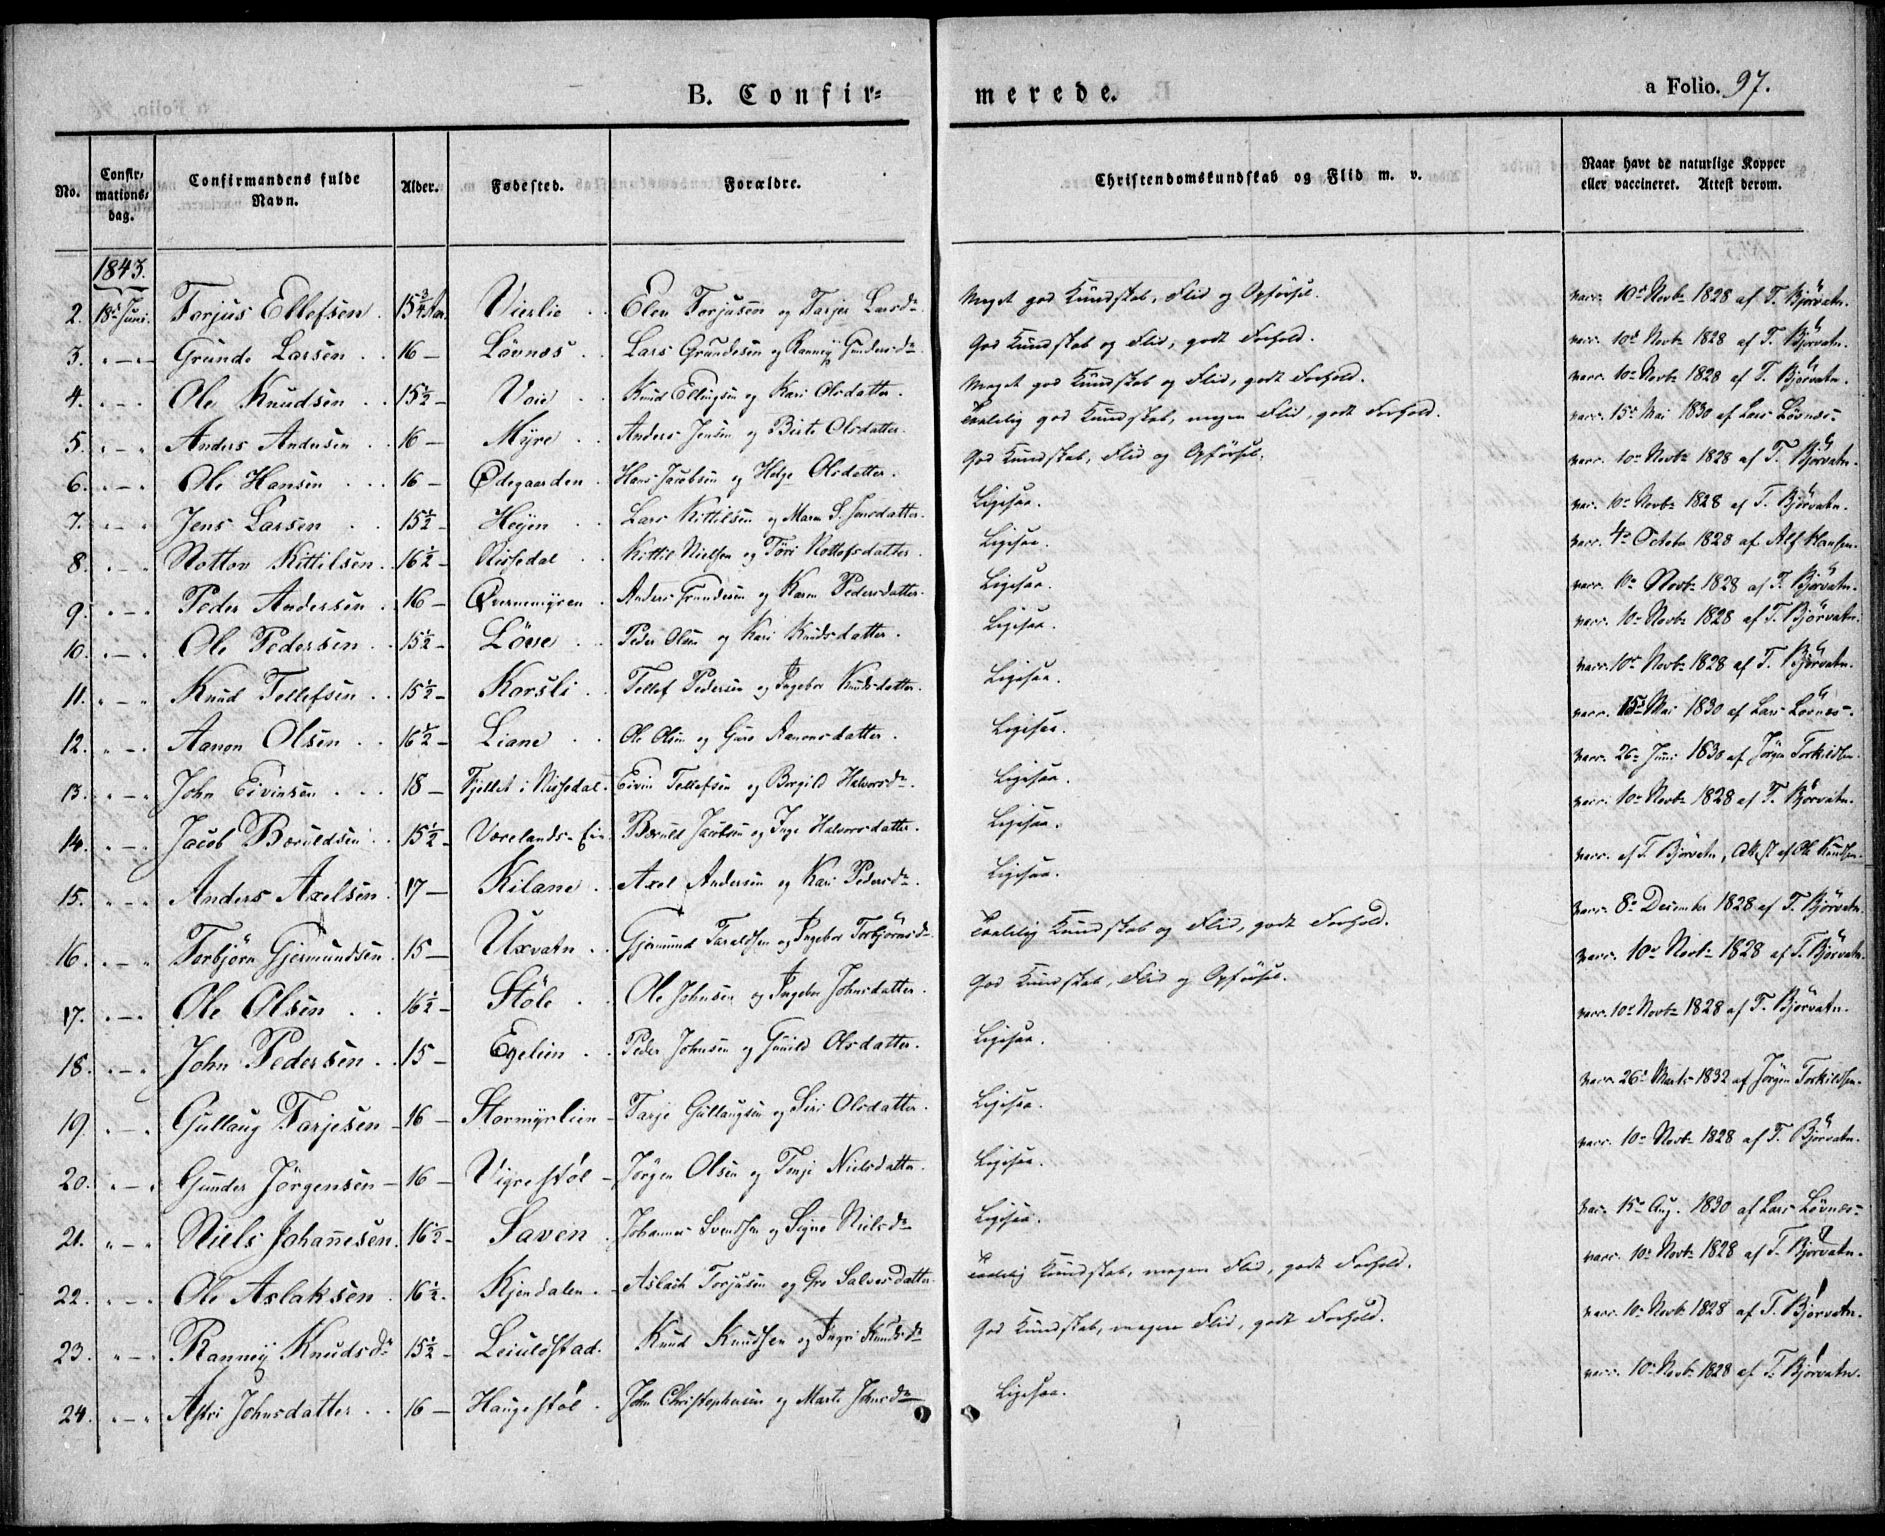 B. Confir=
merede.
a Folio. 97.
No.
Confir,
mations,
dag.
Confirmandens fulde
Navn.
Alder.
Fødested.
Forældre.
Christendomskundskab og Flid m. v.
Naar havt de naturlige Kopper
eller vaccineret. Attest derom.
1843.
2. 18d Juni. Torjus Ellefsen. 15 3/4 Aar. Vierlie Torjusen og Tarjer Larsdr Meget god Kundskab, Flid og Opførsel. vacc. 10d Novbr 1828 af T. Bjørvatn.
3. " — " Grunde Larsen 16 — Løvnes Lars Grundesen og Ranneÿ Gundersdr God Kundskab og Flid, godt Forhold. vacc. 10d Novbr 1828 af T. Bjørvatn.
4. " — " Ole Knudsen 15½ — Voie Knud Ellingsen og Kari Olsdatter. Meget god Kundskab og Flid, godt Forhold. vacc. 10d Novbr 1828 af T. Bjørvatn.
5. " — " Anders Andersen 16 — Mÿre Anders Jensen og Birte Olsdatter. Taalelig god Kundskab, megen Flid, godt Forhold. vacc. 15d Mai 1830 af Lars Løvnes.
6. " — " Ole Hansen 16 — Ødegaarden Hans Jacobsen og Helge Olsdatter. God Kundskab, Flid og Opførsel. vacc. 10d Novbr 1828 af T. Bjørvatn.
7. " — " Jens Larsen 15½ — Heÿen Lars Kittilsen og Maren S. Jensdatter. Ligesaa. vacc. 10d Novbr 1828 af T. Bjørvatn.
8. " — " Nottov Kittilsen. 16½ — Nissedal Kittil Nielsen og Töri Nottofsdatter. Ligesaa. vacc. 4d October 1828 af Alf Hansen.
9. " — " Peder Andersen 16 — Øvernemÿren Anders Grundesen og Karen Pedersdatter. Ligesaa. vacc. 10d Novbr 1828 af T. Bjørvatn.
10. " — " Ole Pedersen 15½ — Løvse Peder Olsen og Kari Knudsdatter. Ligesaa. vacc. 10d Novbr 1828 af T. Bjørvatn.
11. " — " Knud Tellefsen 15½ — Korsli Tellef Pedersen og Ingebor Knudsdatter. Ligesaa. vacc. 10d Novbr 1828 af T. Bjørvatn.
12. " — " Aanon Olsen 16½ — Liane Ole Olsen og Guro Aanonsdatter. Ligesaa. vacc. 15d Mai 1830 af Lars Løvnes.
13. " — " John Eivinsen 18 — Fjellet i Nissedal. Eivin Tellefsen og Borgild Halvorsdr. Ligesaa. vacc. 26d Juni 1830 af Jørgen Torkildsen.
14. " — " Jacob Bæruldsen 15½ — Værelands-Eie Bæruld Jacobsen og Inge Halvorsdatter. Ligesaa. vacc. 10d Novbr 1828 af T. Bjørvatn.
15. " — " Anders Axelsen. 17 — Kilane Axel Andersen og Kari Pedersdr. Ligesaa. vacc. af T. Bjørvatn, Attest af Ole Knudsen.
16. " — " Torbjørn Gjermundsen. 15 — Uxvatn Gjermund Taraldsen og Ingebor Torbjørnsdr. Taalelig Kundskab og Flid, godt Forhold. vacc. 8d December 1828 af T. Bjørvatn.
17. " — " Ole Olsen 16½ — Støle Ole Johnsen og Ingebor Johnsdatter. God Kundskab, Flid og Opførsel. vacc. 10d Novbr 1828 af T. Bjørvatn.
18. " — " John Pedersen 15 — Egelien Peder Johnsen og Gunild Olsdatter. Ligesaa. vacc. 10d Novbr 1828 af T. Bjørvatn.
19. " — " Gullaug Tarjesen — 16 — Stormÿrlien — Tarje Gullaugsen og Siri Olsdatter. Ligesaa. vacc. 26d Marts 1832 af Jørgen Torkildsen.
20. " — " Gunder Jørgensen — 16 — Vigrestøl — Jørgen Olsen og Tonje Nielsdatter. Ligesaa. vacc. 10d Novbr 1828 af T. Bjørvatn.
21. " — " Niels Johannesen. 16½ — Saven Johannes Svendsen og Signe Nielsdr Ligesaa. vacc. 15d Aug. 1830 af Lars Løvnes.
22. " — " Ole Aslaksen 16½. Kjendalen. — Aslach Torjusen og Gro Salvesdatter Taalelig Kundskab, megen Flid, godt Forhold. vacc. 10d Novbr 1828 af T. Bjørvatn.
23. " — " Ranneÿ Knudsdr 15½ — Leiuldstad. Knud Knudsen og Ingri Knudsdr God Kundskab, megen Flid, godt Forhold. vacc. 10d Novbr 1828 af T. Bjørvatn.
24. " — " Astri Johnsdatter 16 — Haugestøl John Christophersen og Marte Johnsdr Ligesaa. vacc. 10d Novbr 1828 af T. Bjørvatn.